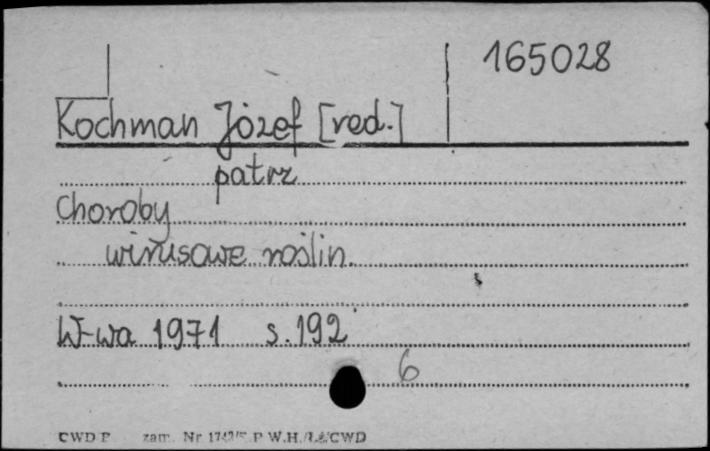 165028
Kochman Józef [red.]
patrz
Choroby
wirusowe roślin.
W-wa 1971 s.192
6
CWD P zam. Nr P.W.H. CWD